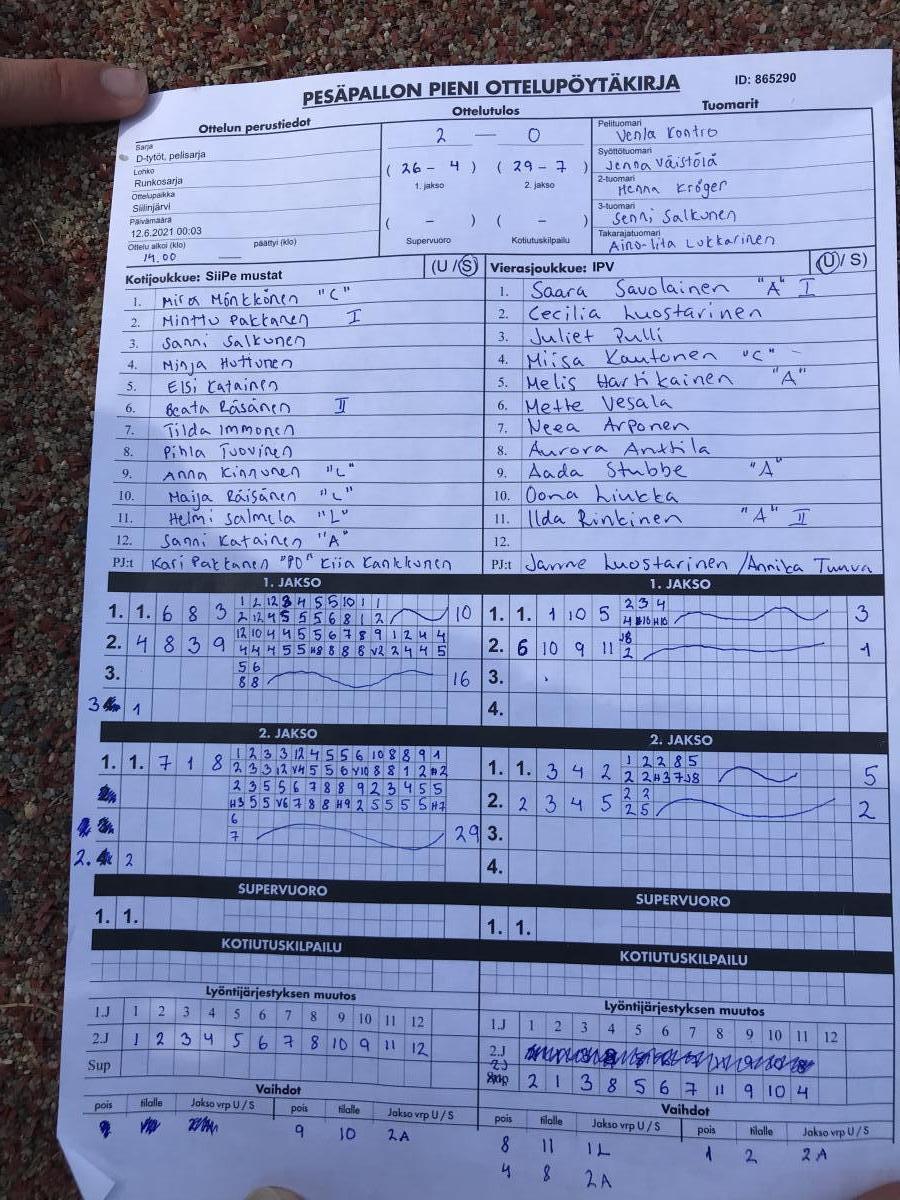 PESÄPALLON PIENI OTTELUPÖYTÄKIRJA ID: 865290
Ottelun perustiedot Ottelutulos Tuomarit
Sarja
D-tytöt, pelisarja
Lohko
Runkosarja
Ottelupaikka
Siilinjärvi
Päivämäärä
12.6.2021 00:03
Ottelu alkoi (klo) päättyi (klo)
14.00 —
2 — 0
(26 - 4) (29 - 7)
1. jakso 2. jakso
( - ) ( - )
Supervuoro Kotiutuskilpailu
Pelituomari
Venla Kontro
Syöttötuomari
Jenna Väistölä
2-tuomari
Henna Kröger
3-tuomari
Senni Salkunen
Takarajatuomari
Aino-Iita Lukkarinen
Kotijoukkue: SiiPe mustat (U / S)
1. Mira Mönkkönen "C"
2. Minttu Pakkanen I
3. Sanni Salkunen
4. Minja Huttunen
5. Elsi Katainen
6. Beata Räsänen II
7. Tilda Immonen
8. Pihla Tuovinen
9. Anna Kinnunen "L"
10. Maija Räisänen "L"
11. Helmi Salmela "L"
12. Sanni Katainen "A"
PJ:t Kari Pakkanen "PO" Kiia Kankkunen
Vierasjoukkue: IPV (U / S)
1. Saara Savolainen "A" I
2. Cecilia Luostarinen
3. Juliet Pulli
4. Miisa Kautonen "C"
5. Melis Hartikainen "A"
6. Mette Vesala
7. Neea Arponen
8. Aurora Anttila
9. Aada Stubbe "A"
10. Oona Liukka
11. Ilda Rinkinen "A" II
12.
PJ:t Janne Luostarinen / Annika
1. JAKSO
1. 1. 6 8 3 1 2 12 3 4 5 5 10 1 1 10
2 12 4 5 5 5 6 8 1 2
2. 4 8 3 9 12 10 4 4 5 5 6 7 8 9 1 2 4 4
4 4 4 5 5 H8 8 8 8 V2 2 4 4 5
3. 5 6 16
8 8
3 1
1. JAKSO
1. 1. 1 10 5 2 3 4 3
2. 6 10 9 11 J8 1
2
3.
4.
2. JAKSO
1. 1. 7 1 8 1 2 3 3 12 4 5 5 6 10 8 8 9 1
2 3 3 12 V4 5 5 6 V10 8 8 1 2 H2
2 3 5 5 6 7 8 8 9 2 3 4 5 5
H3 5 5 V6 7 8 8 H9 2 5 5 5 5 H7
6 29
7
2. 2
2. JAKSO
1. 1. 3 4 2 1 2 2 8 5 5
2 2 H3 7 J8
2. 2 3 4 5 2 2 2
2 5
3.
4.
SUPERVUORO
1. 1.
SUPERVUORO
1. 1.
KOTIUTUSKILPAILU
KOTIUTUSKILPAILU
Lyöntijärjestyksen muutos
1.J 1 2 3 4 5 6 7 8 9 10 11 12
2.J 1 2 3 4 5 6 7 8 10 9 11 12
Sup
Vaihdot
pois tilalle Jakso vrp U / S pois tilalle Jakso vrp U / S
9 10 2A
Lyöntijärjestyksen muutos
1.J 1 2 3 4 5 6 7 8 9 10 11 12
2.J
2J 2 1 3 8 5 6 7 11 9 10 4
Vaihdot
pois tilalle Jakso vrp U / S pois tilalle Jakso vrp U / S
8 11 1L 1 2 2A
4 8 2A